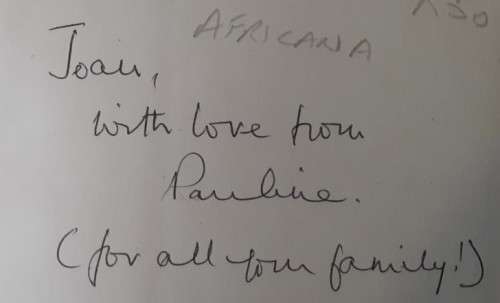 AFRICANA
Joan,
with love from
Pauline.
(for all your family!)